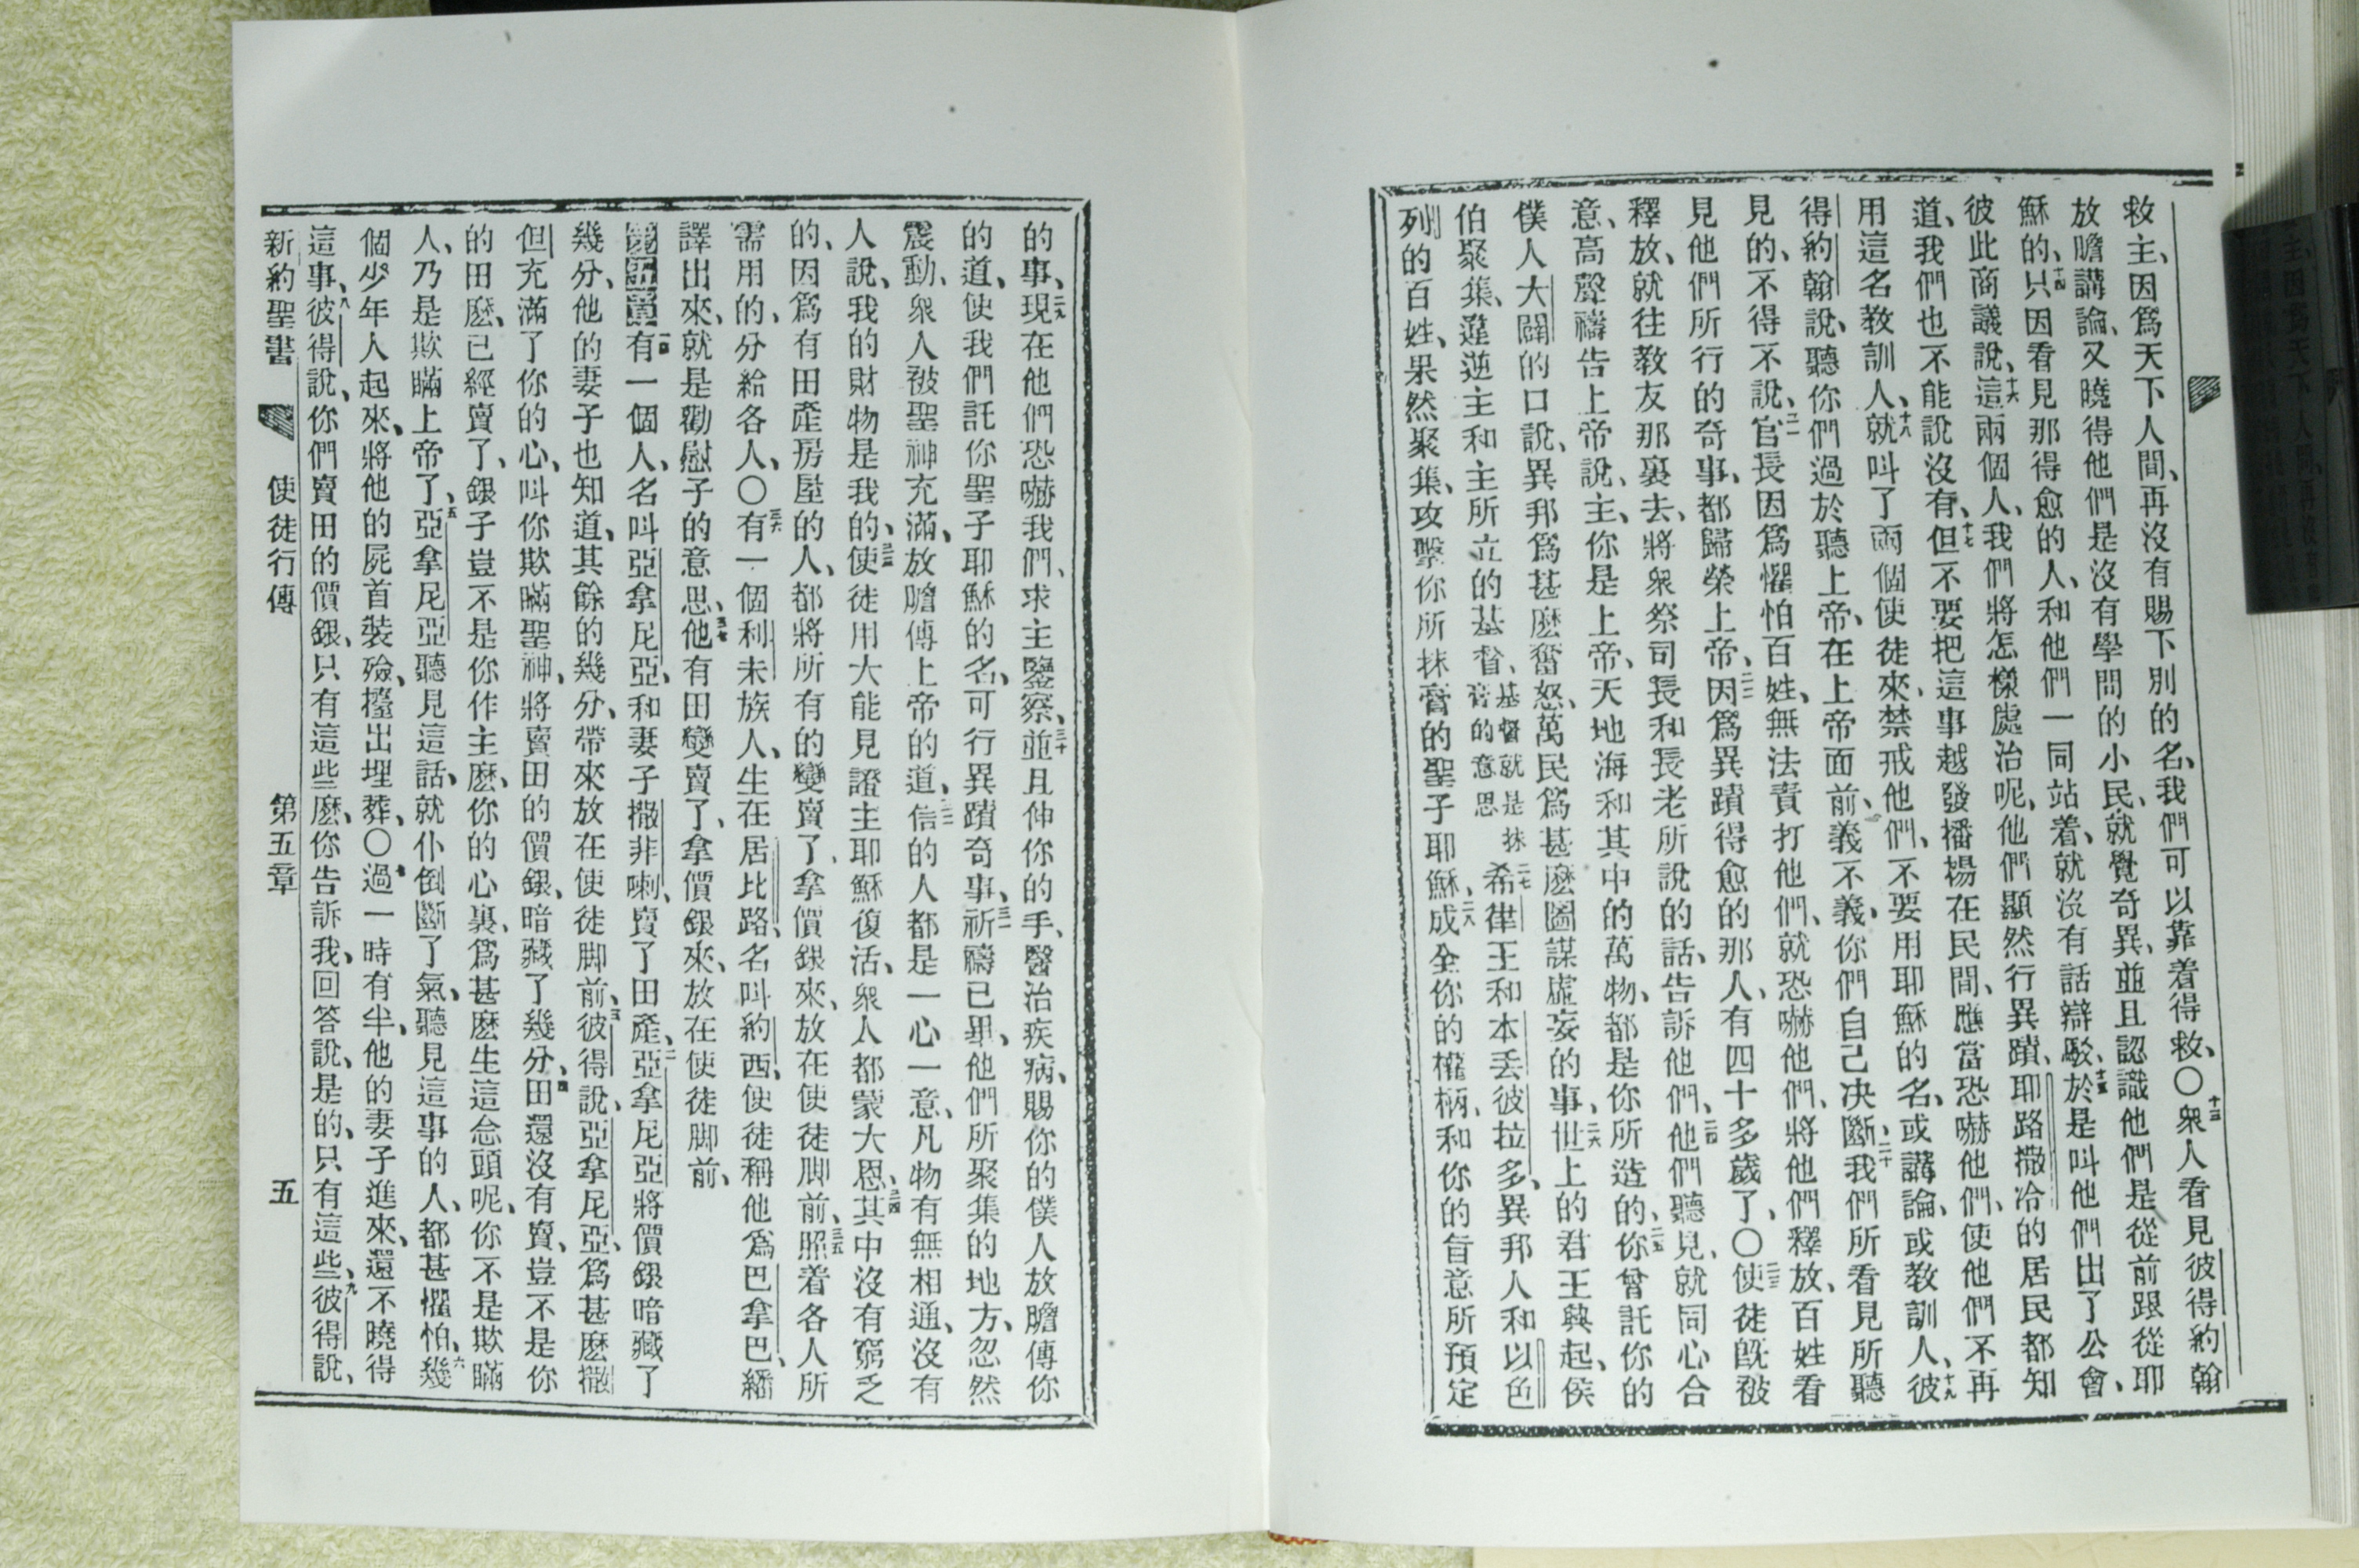 救主、因爲天下人間、再沒有賜下別的名、我們可以靠着得救、〇十三衆人看見彼得約翰
放膽講論、又曉得他們是沒有學問的小民、就覺奇異、並且認識他們是從前跟從耶
穌的、十四只因看見那得愈的人、和他們一同站着、就沒有話辯駁、十五於是叫他們出了公會、
彼此商議說、十六這兩個人、我們將怎樣處治呢、他們顯然行異蹟、耶路撒冷的居民都知
道、我們也不能說沒有、十七但不要把這事越發播揚在民間、應當恐嚇他們、使他們不再
用這名教訓人、十八就叫了兩個使徒來、禁戒他們、不要用耶穌的名、或講論、或教訓人、十九彼
得約翰說、聽你們過於聽上帝、在上帝面前、義不義、你們自己决斷、二十我們所看見所聽
見的、不得不說、二一官長因爲懼怕百姓、無法責打他們、就恐嚇他們、將他們釋放、百姓看
見他們所行的奇事、都歸榮上帝、二二因爲異蹟得愈的那人、有四十多歲了、〇二三使徒旣被
釋放、就往教友那裏去、將衆祭司長和長老所說的話、告訴他們、二四他們聽見、就同心合
意、高聲禱告上帝說、主、你是上帝、天地海和其中的萬物、都是你所造的、二五你曾託你的
僕人大闢的口說、異邦爲甚麽奮怒、萬民爲甚麽圖謀虛妄的事、二六世上的君王興起、侯
伯聚集、違逆主和主所立的基督、基督就是抹膏的意思二七希律王和本丢彼拉多、異邦人和以色
列的百姓、果然聚集、攻擊你所抹膏的聖子耶穌、二八成全你的權柄、和你的旨意所預定
的事、二九現在他們恐嚇我們、求主鑒察、三十並且伸你的手、醫治疾病、賜你的僕人放膽傳你
的道、使我們託你聖子耶穌的名、可行異蹟奇事、三一祈禱已畢、他們所聚集的地方、忽然
震動、衆人被聖神充滿、放膽傳上帝的道、三二信的人都是一心一意、凡物有無相通、沒有
人說、我的財物是我的、三三使徒用大能見證主耶穌復活、衆人都蒙大恩、三四其中沒有窮乏
的、因爲有田產房屋的人、都將所有的變賣了、拿價銀來、放在使徒脚前、三五照着各人所
需用的、分給各人、〇三六有一個利未族人、生在居比路、名叫約西、使徒稱他爲巴拿巴、繙
譯出來、就是勸慰子的意思、三七他有田變賣了、拿價銀來、放在使徒脚前、
第五章一有一個人、名叫亞拿尼亞、和妻子撒非喇、賣了田產、二亞拿尼亞將價銀暗藏了
幾分、他的妻子也知道、其餘的幾分、帶來放在使徒脚前、三彼得說、亞拿尼亞、爲甚麽撒
但充滿了你的心、叫你欺瞞聖神、將賣田的價銀、暗藏了幾分、四田還沒有賣、豈不是你
的田麽、已經賣了、銀子豈不是你作主麽、你的心裏、爲甚麽生這念頭呢、你不是欺瞞
人、乃是欺瞞上帝了、五亞拿尼亞聽見這話、就仆倒斷了氣、聽見這事的人、都甚懼怕、六幾
個少年人起來、將他的屍首裝殮、擡出埋葬、〇七過一時有半、他的妻子進來、還不曉得
這事、八彼得說、你們賣田的價銀、只有這些麽、你告訴我、回答說、是的、只有這些、九彼得說、
新約聖書 使徒行傳 第五章 五